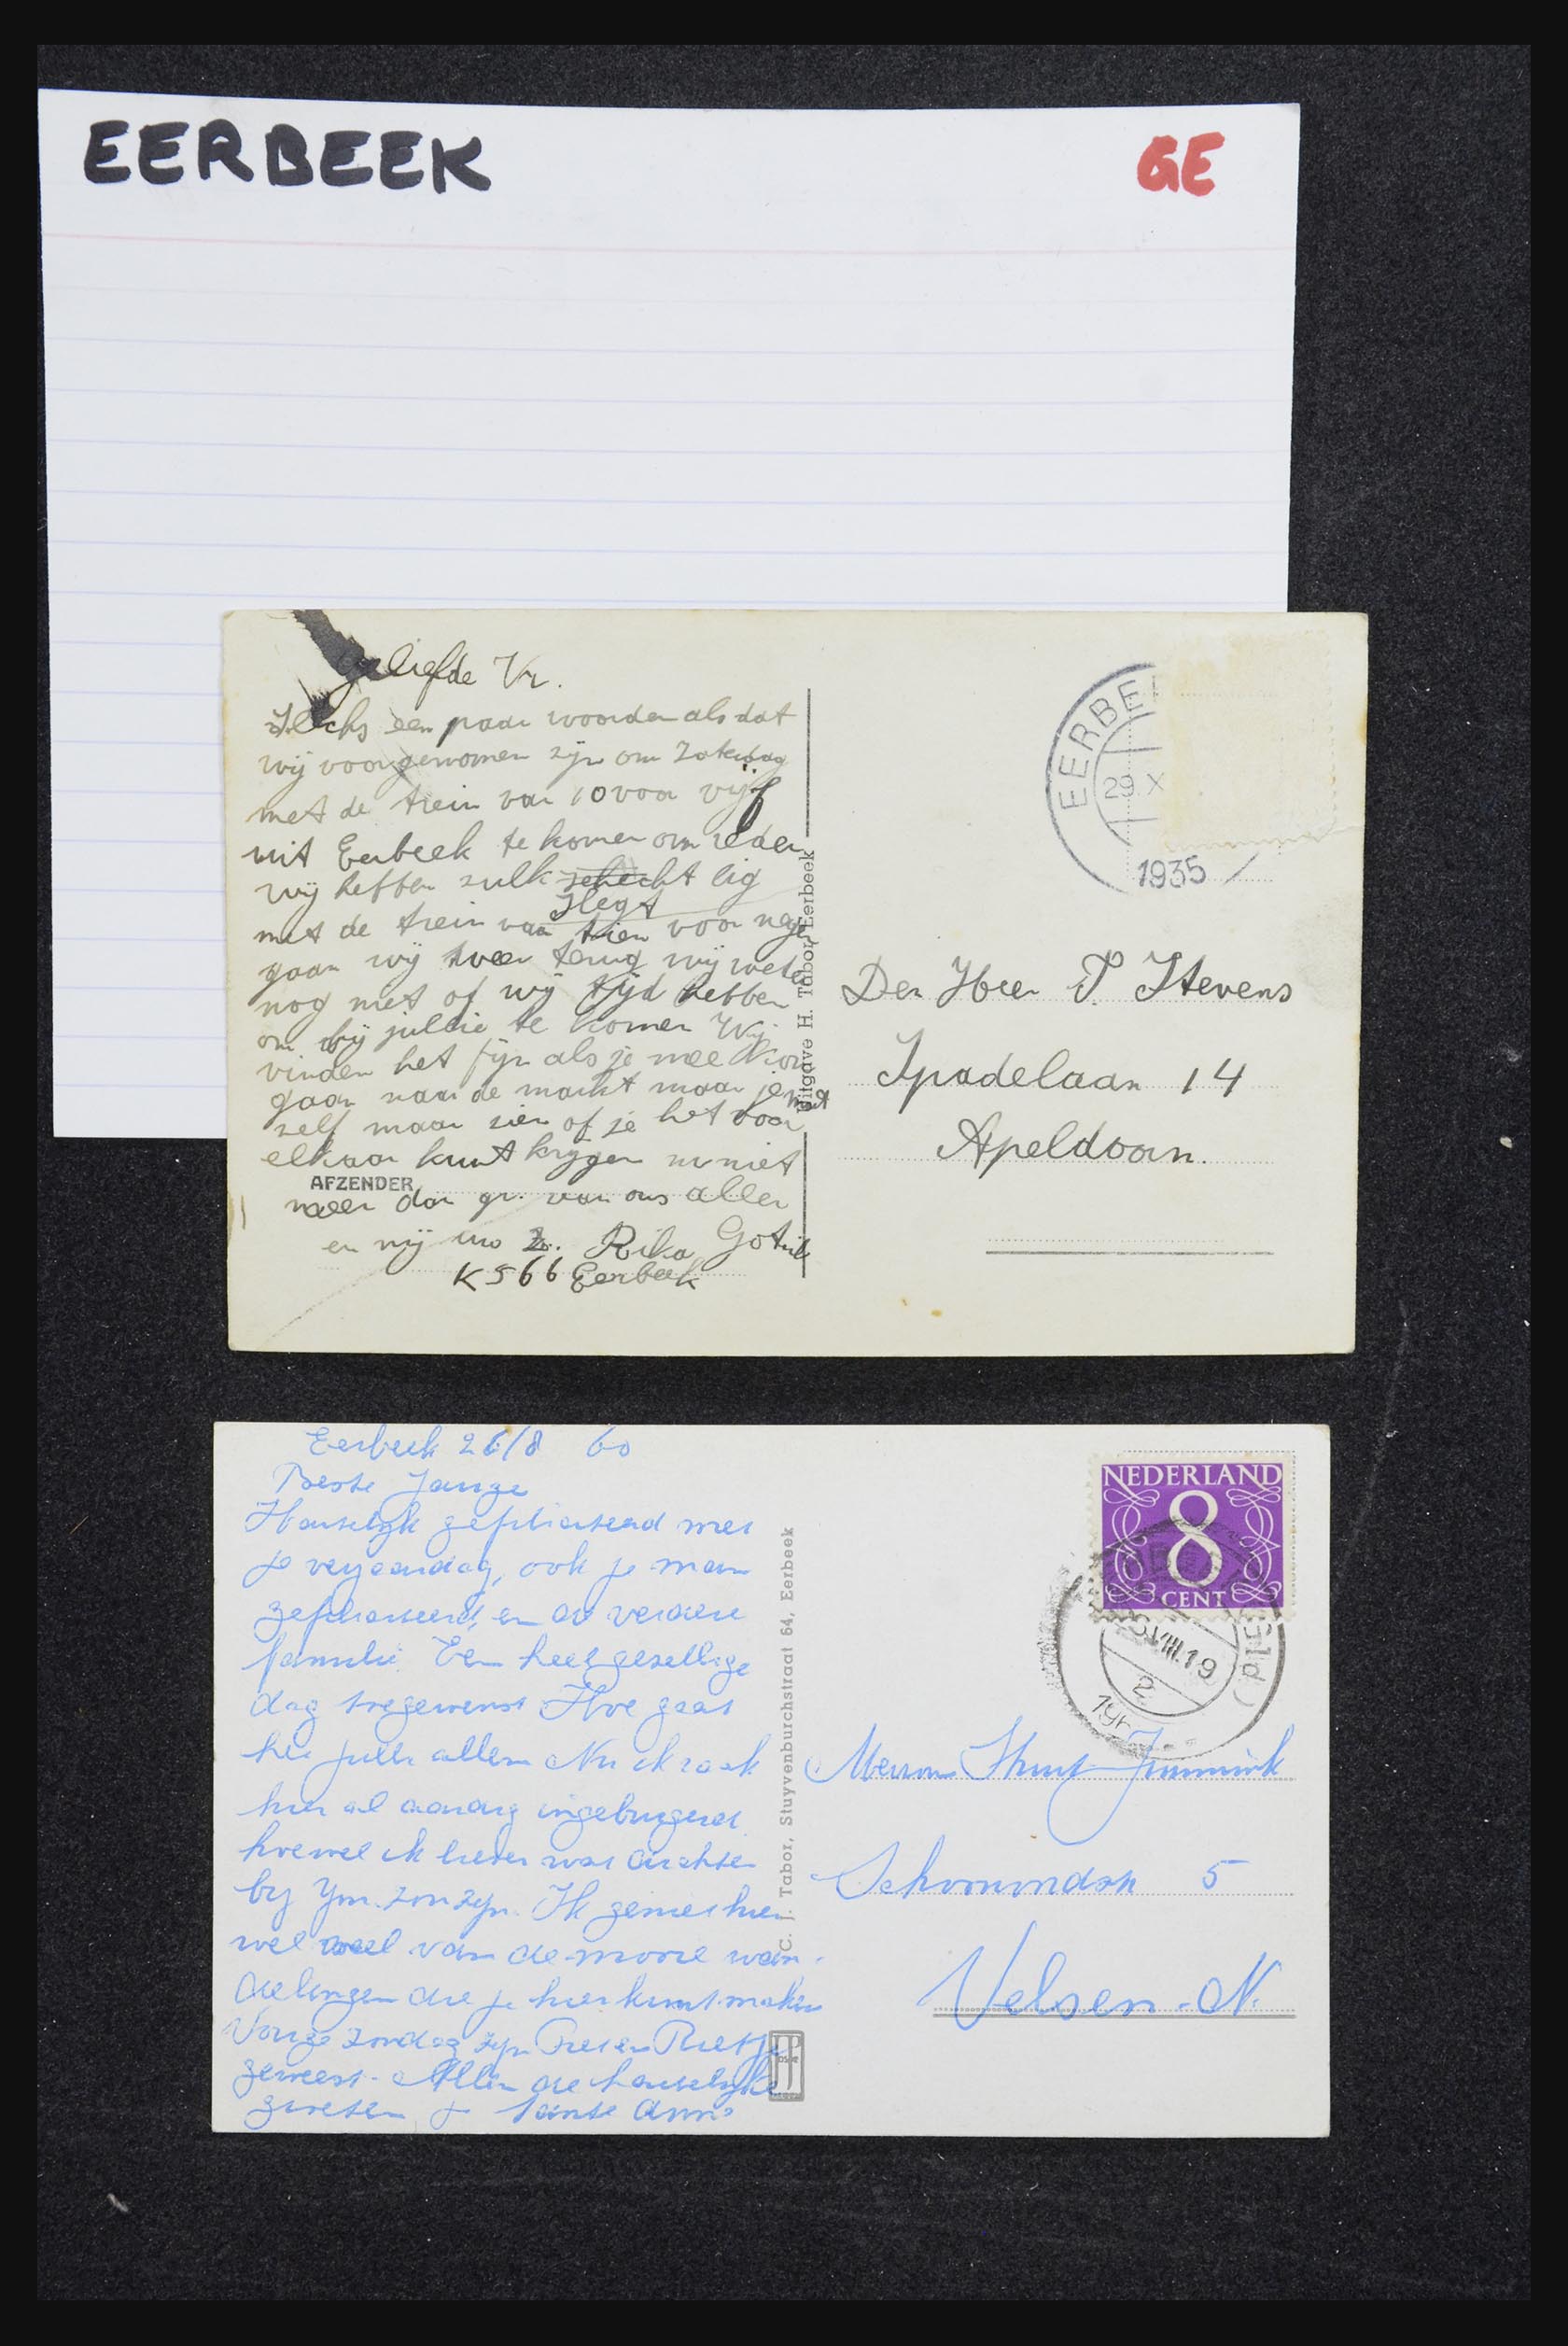 EERBEEK
GE
geliefde Vr.
Slechs een paar woorden als dat
wij voorgenomen zijn om Zaterdag
met de trein van 10 voor vijf
uit Eerbeek te komen om reden
wij hebben zulk schecht lig
slegt
met de trein van tien voor nege
gaan wij weer terug wij weten
nog niet of wij tijd hebben
om bij jullie te komen Wij
vinden het fijn als je mee kon
gaan naar de markt maar je moet
zelf maar zien of je het voor
elkaar kunt krijgen nu niet
AFZENDER
meer dan gr. van ons allen
en mij uw Rika
K 566 Eerbeek
Uitgave H. Tabor, Eerbeek
EERBEE
29.X
1935
Den Heer P Stevens
Spadelaan 14
Apeldoorn.
Eerbeek 26/8 60
Beste Jansje
Hartelijk gefeliciteerd met
je verjaardag, ook je man
gefeliciteerd, en de verdere
familie. Een heel gezellige
dag toegewenst Hoe gaat
het jullie allen Nu ik raak
hier al aardig ingeburgerd
hoewel ik liever wat dichter
by Ym. zou zyn. Ik geniet hier
wel veel van de mooie wan-
delingen die je hier kunt maken
Vorige zondag zyn Piet en Rietje
geweest. Allen de hartelyke
groeten je tante Anna
C. J. Tabor, Stuyvenburchstraat 64, Eerbeek
NEDERLAND
8
CENT
VIII.19
2
(GLD)
Mevrouw
5
Velsen-N.